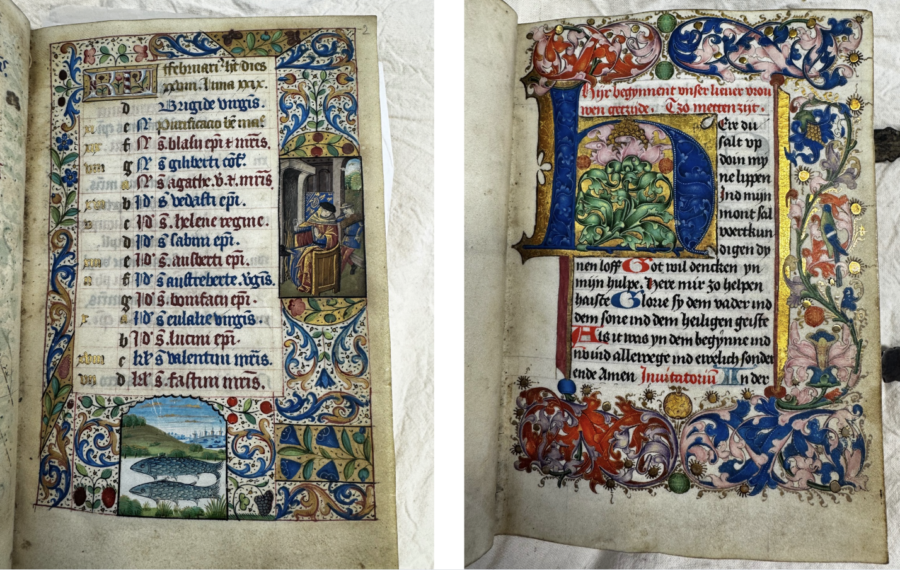 2
KL
ffebruari9 ht dies
xxviii. luna xxix.
d Brigide virgis.
e Purificacio be marie
f s blasii epi & mris.
g s gilberti cōf.
s agathe. v. & mris
b Id s vedasti epi.
c Id s. helene regine.
d Id s sabini epi.
e Id s. ausberti epi.
f Id s austreberte vgis.
g Id s. bonifacii epi.
Id s eulalie virgis.
b Id s. lucini epi.
c kł s valentini mris.
d kł s. fastini mris.
Hijr begynnent vnser liever vrou
wen getzijde. Tzo metten zijt.
HEre du
salt vp
doin my
ne lippen
Ind mijn
mont sal
voertkun
digen dy
nen loff Got wil dencken yn
mijn hulpe. Here mir zo helpen
haiste Glorie sy dem vader ind
dem sone ind dem heiligen geiste
Als it was yn dem begynne ind
nv ind allewege ind ewelich sonder
ende Amen Invitatoriū In der